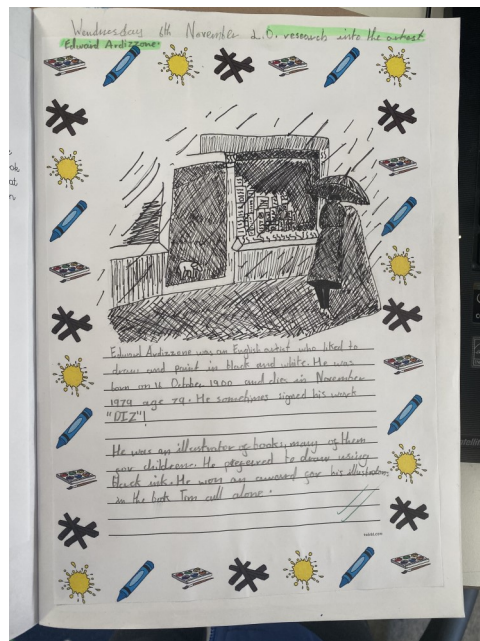 Wendnesday 6th November L.O. research into the artest
Edward Ardizzone.
Edward Ardizzone was an English artist who liked to
draw and paint in black and white. He was
born on 16 October 1900 and dies in November
1979 age 79. He sometimes signed his work
"DIZ"!
He was an illustrator of books, many of them
for childrens. He prefered to draw using
black ink. He won an award for his illustrations
in the book Tim all alone.